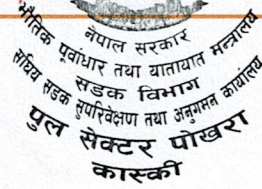 नेपाल सरकार
भौतिक पूर्वाधार तथा यातायात मन्त्रालय
सडक विभाग
संघिय सडक सुपरिवेक्षण तथा अनुगमन कार्यालय
पुल सेक्टर पोखरा
कास्की